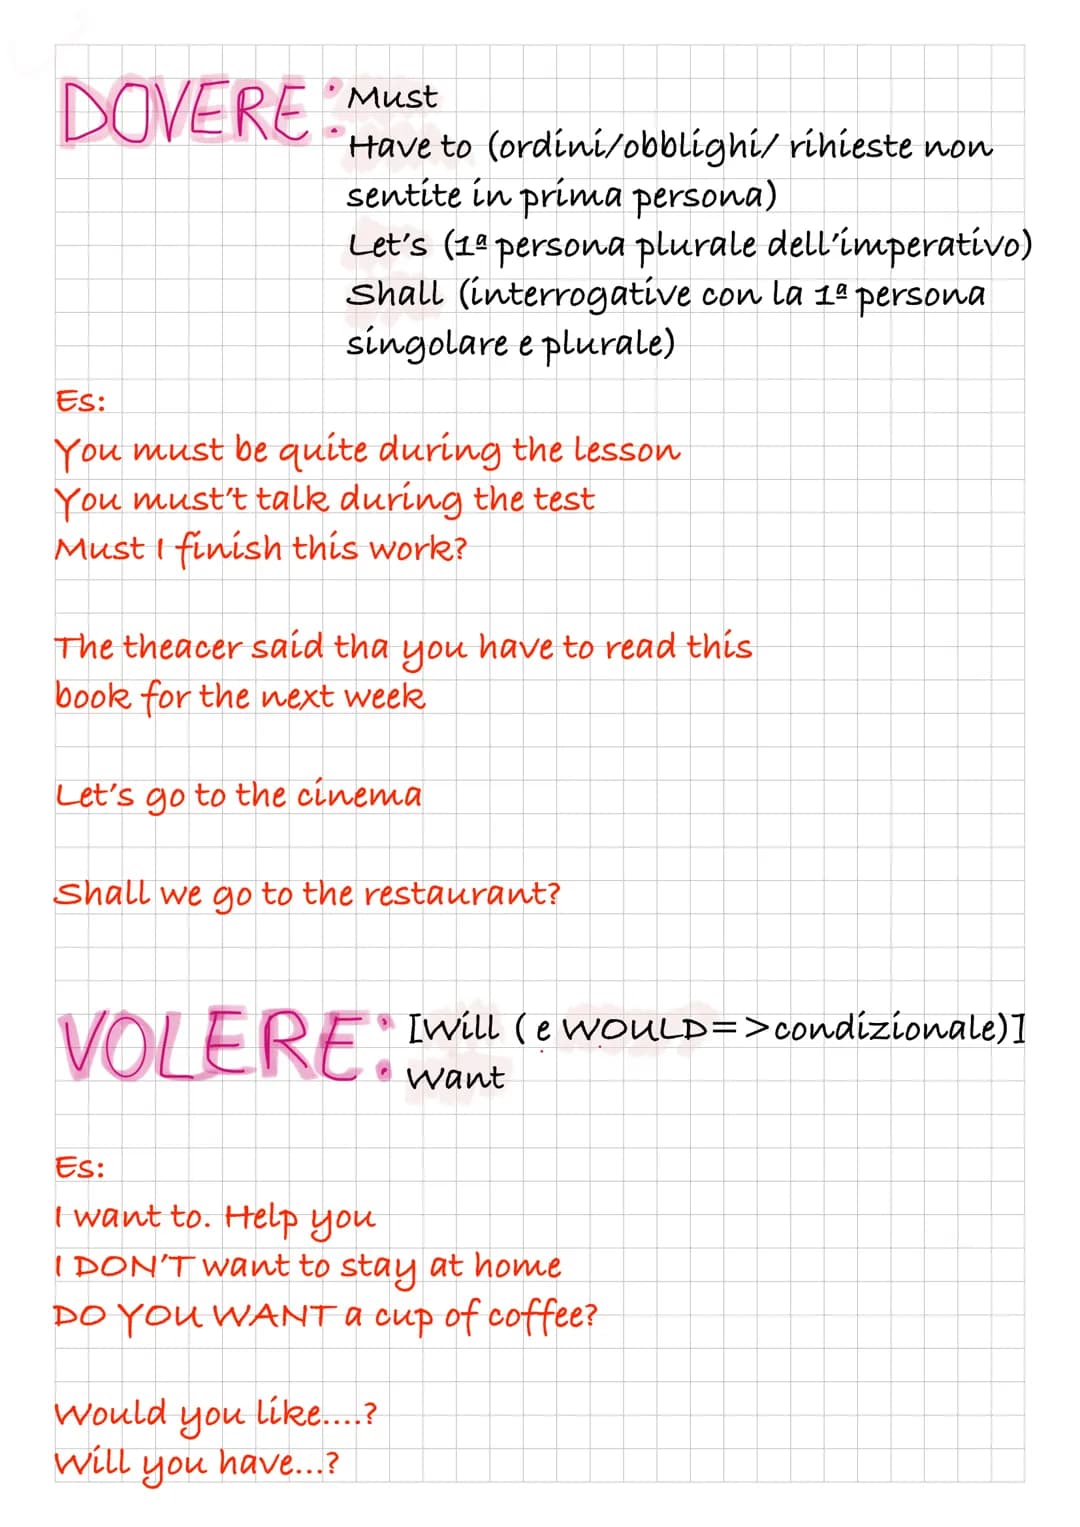 DOVERE: Must
Have to (ordini/obblighi/ rihieste non
sentite in prima persona)
Let's (1ª persona plurale dell'imperativo)
Shall (interrogative con la 1ª persona
singolare e plurale)
Es:
You must be quite during the lesson
You must't talk during the test
Must I finish this work?
The theacer said tha you have to read this
book for the next week
Let's go to the cinema
Shall we go to the restaurant?
VOLERE: [Will ( e WOULD=>condizionale)]
Want
Es:
I want to. Help you
I DON'T want to stay at home
DO YOU WANT a cup of coffee?
Would you like....?
Will you have...?